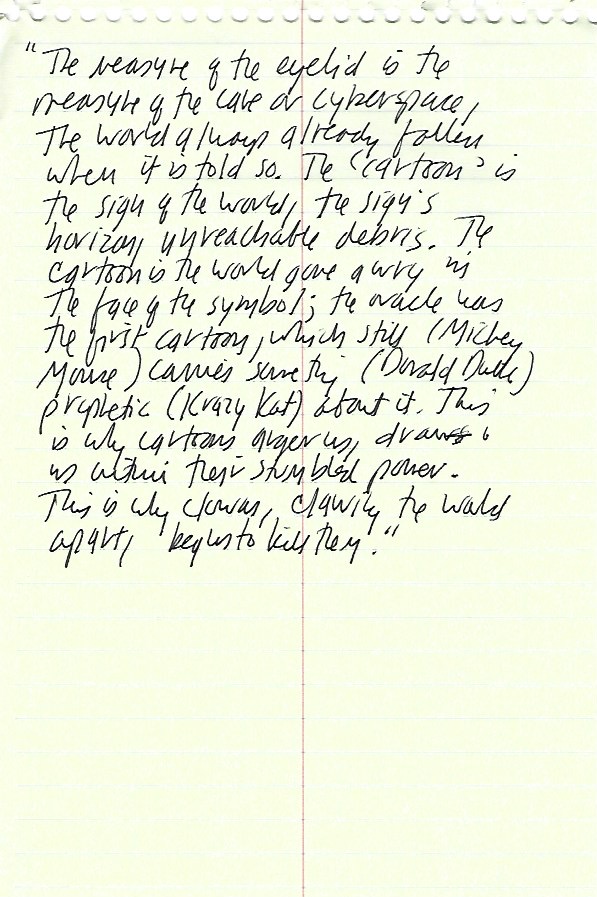 "The measure of the eyelid is the
measure of the cave or cyberspace,
The world always already fallen
when it is told so. The "cartoon" is
the sign of the world, the sign's
horizon, unreachable debris. The
cartoon is the world gone awry in
the face of the symbol; the oracle was
the first cartoon, which still (Mickey
Mouse) carries something (Donald Duck)
prophetic (Krazy Kat) about it. This
is why cartoons anger us, draws
us within their stumbled power.
This is why clowns, clawing the world
apart, begins to kill them."